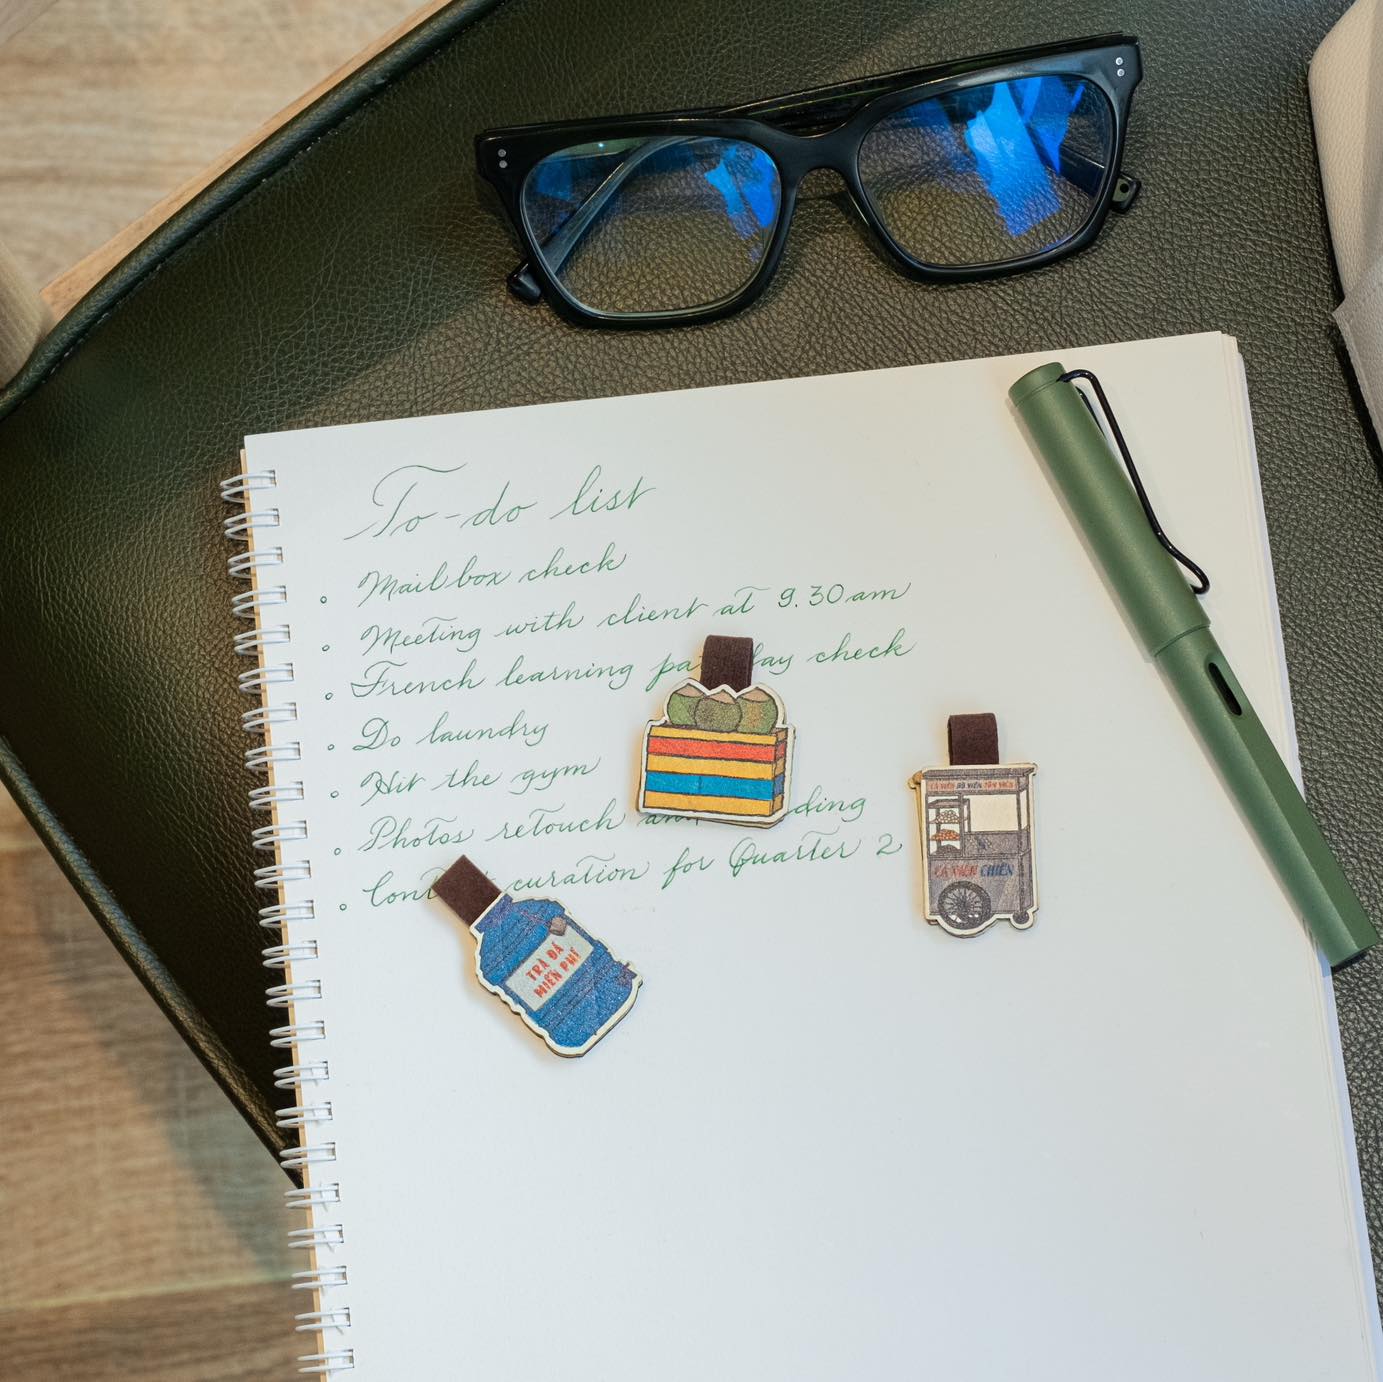 To-do list
Mailbox check
Meeting with client at 9.30am
French learning check
Do laundry
Hit the gym
Photos retouch
curation for Quarter 2
TRÀ ĐÁ
MIỄN PHÍ
CÁ VIÊN BÒ VIÊN TÔM VIÊN
CÁ VIÊN CHIÊN